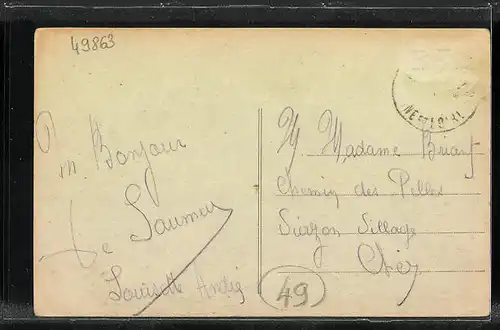 49863
un Bonjour
de Saumur
Louisette
M. Madame Briant
Chemin des
Vierzon Village
Cher
49